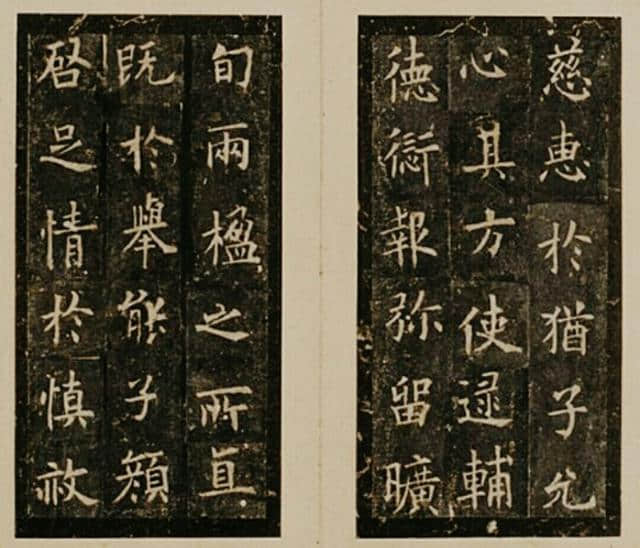 慈惠於猶子允
心具方使逯輔
德愆報弥留曠
旬兩楹之所
既於舉能子顏
啓足情於慎